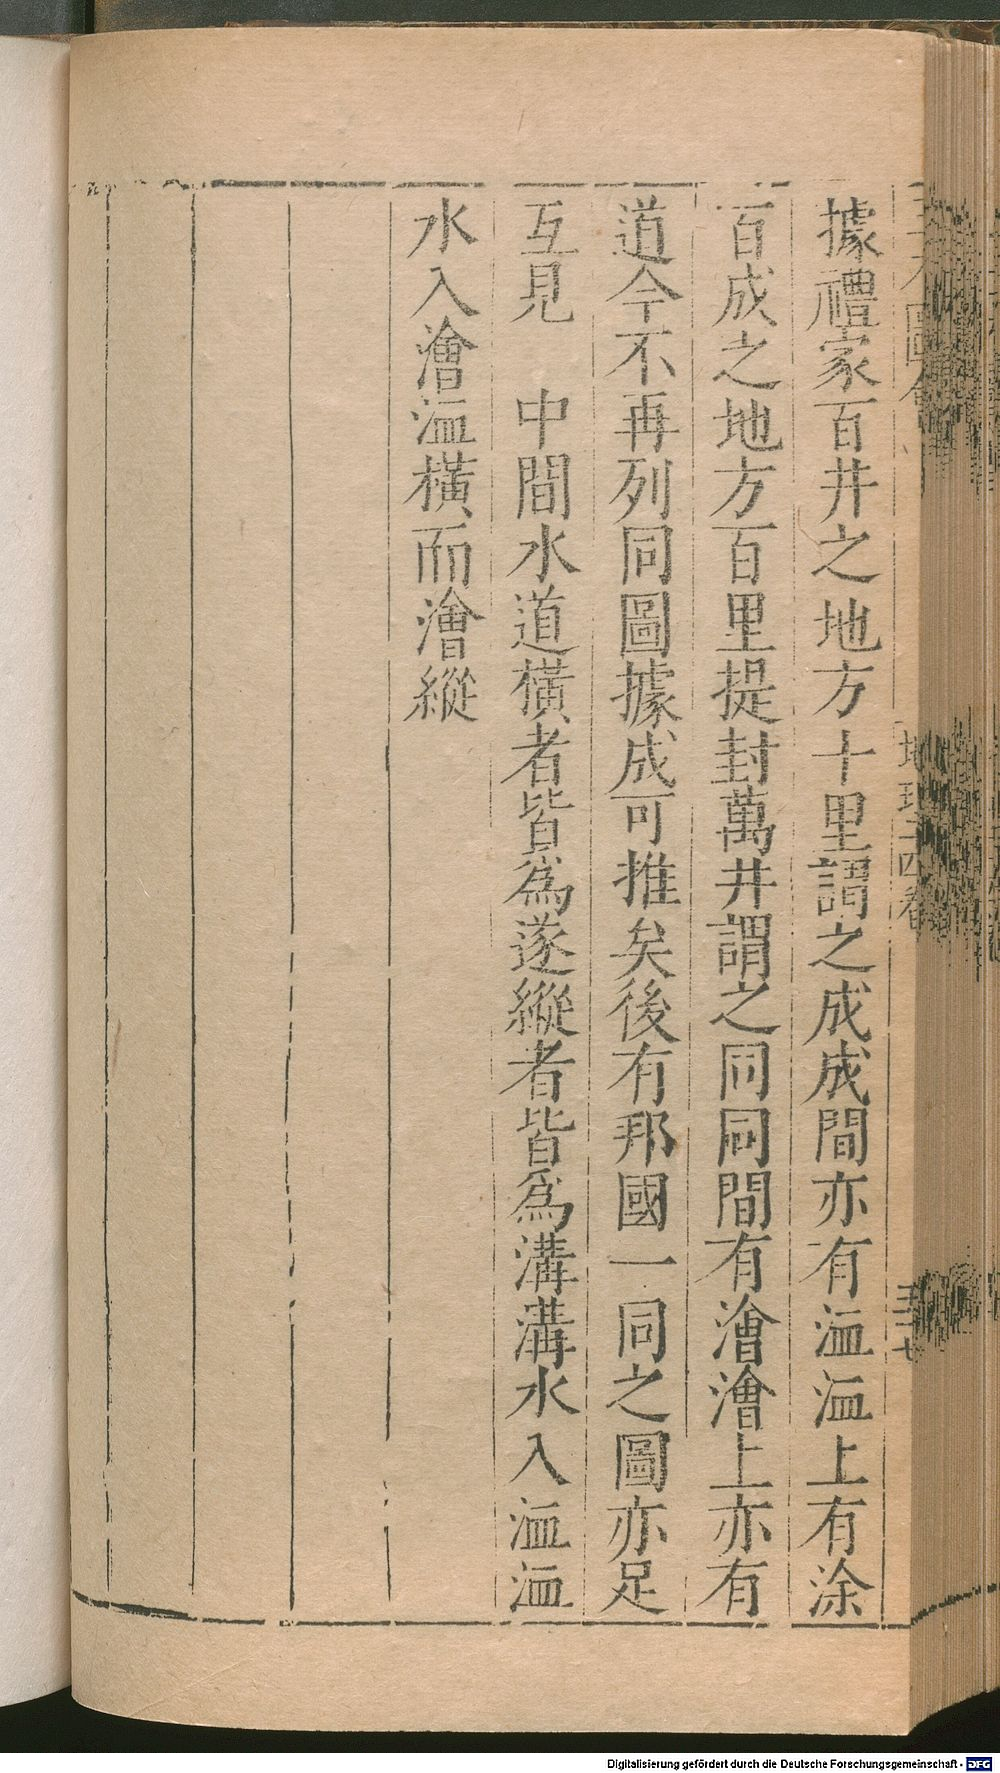 據禮家百井之地方十里謂之成成間亦有洫洫上有涂
百成之地方百里提封萬井謂之同同間有澮澮上亦有
道今不再列同圖據成可推矣後有邦國一同之圖亦足
互見　中間水道橫者皆爲遂縱者皆爲溝溝水入洫洫
水入澮洫橫而澮縱
Digitalisierung gefördert durch die Deutsche Forschungsgemeinschaft - DFG